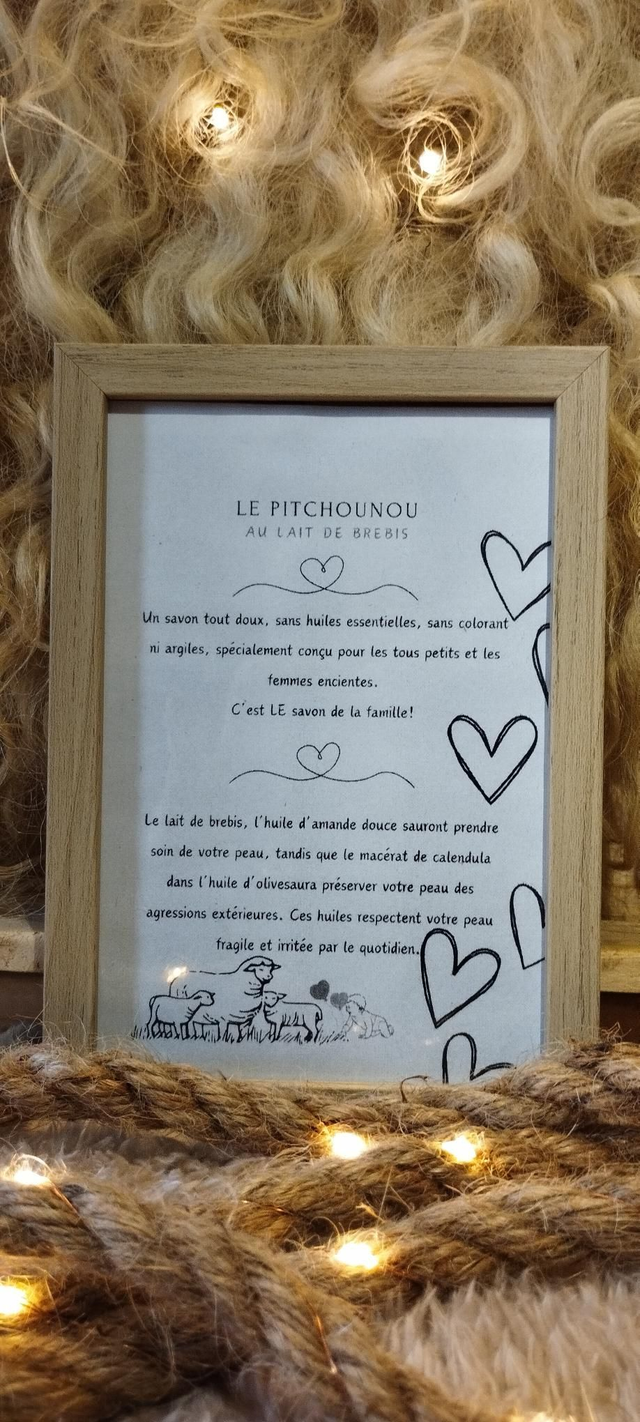 LE PITCHOUNOU
AU LAIT DE BREBIS
Un savon tout doux, sans huiles essentielles, sans colorant
ni argiles, spécialement conçu pour les tous petits et les
femmes encientes.
C'est LE savon de la famille!
Le lait de brebis, l'huile d'amande douce sauront prendre
soin de votre peau, tandis que le macérat de calendula
dans l'huile d'olivesaura préserver votre peau des
agressions extérieures. Ces huiles respectent votre peau
fragile et irritée par le quotidien.